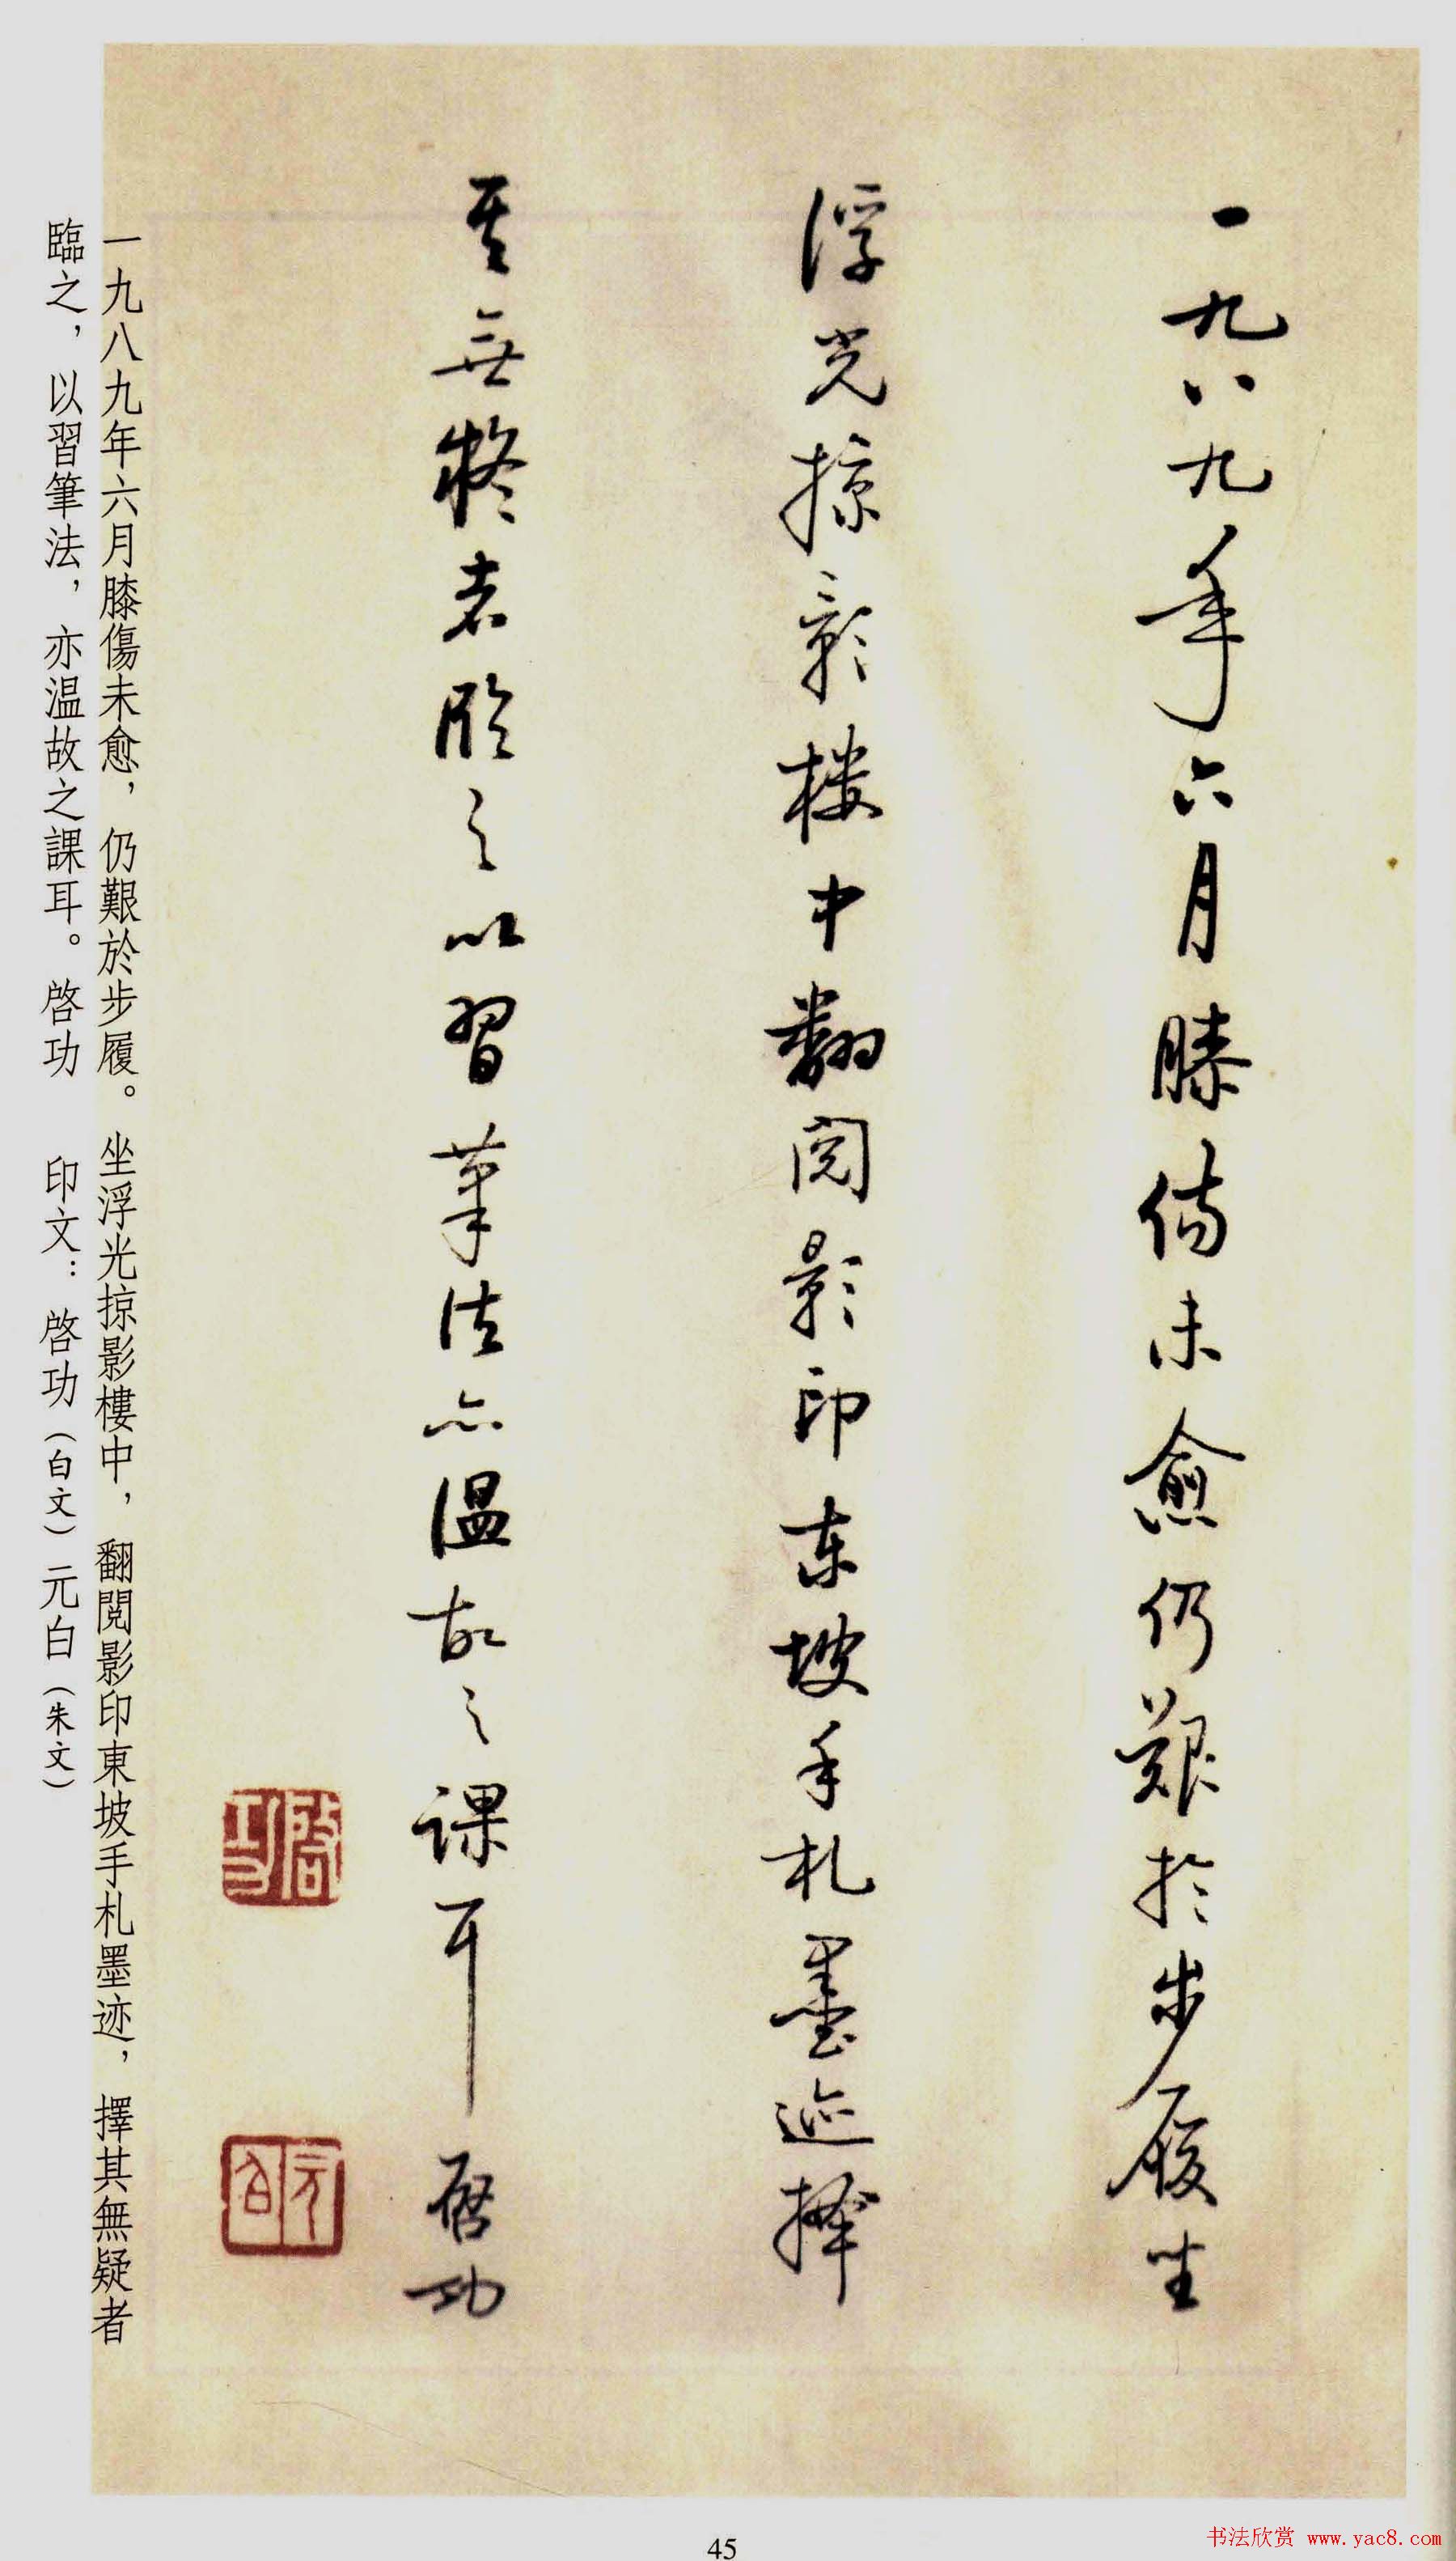 一九八九年六月膝傷未愈仍艱於步履坐
浮光掠影楼中翻閱影印东坡手札墨迹擇
其無疑者臨之以習筆法亦温故之課耳 啓功
啓功
元白
一九八九年六月膝傷未愈，仍艱於步履。坐浮光掠影樓中，翻閱影印東坡手札墨迹，擇其無疑者
臨之，以習筆法，亦温故之課耳。啓功 印文：啓功（白文）元白（朱文）
45
书法欣赏 www.yac8.com